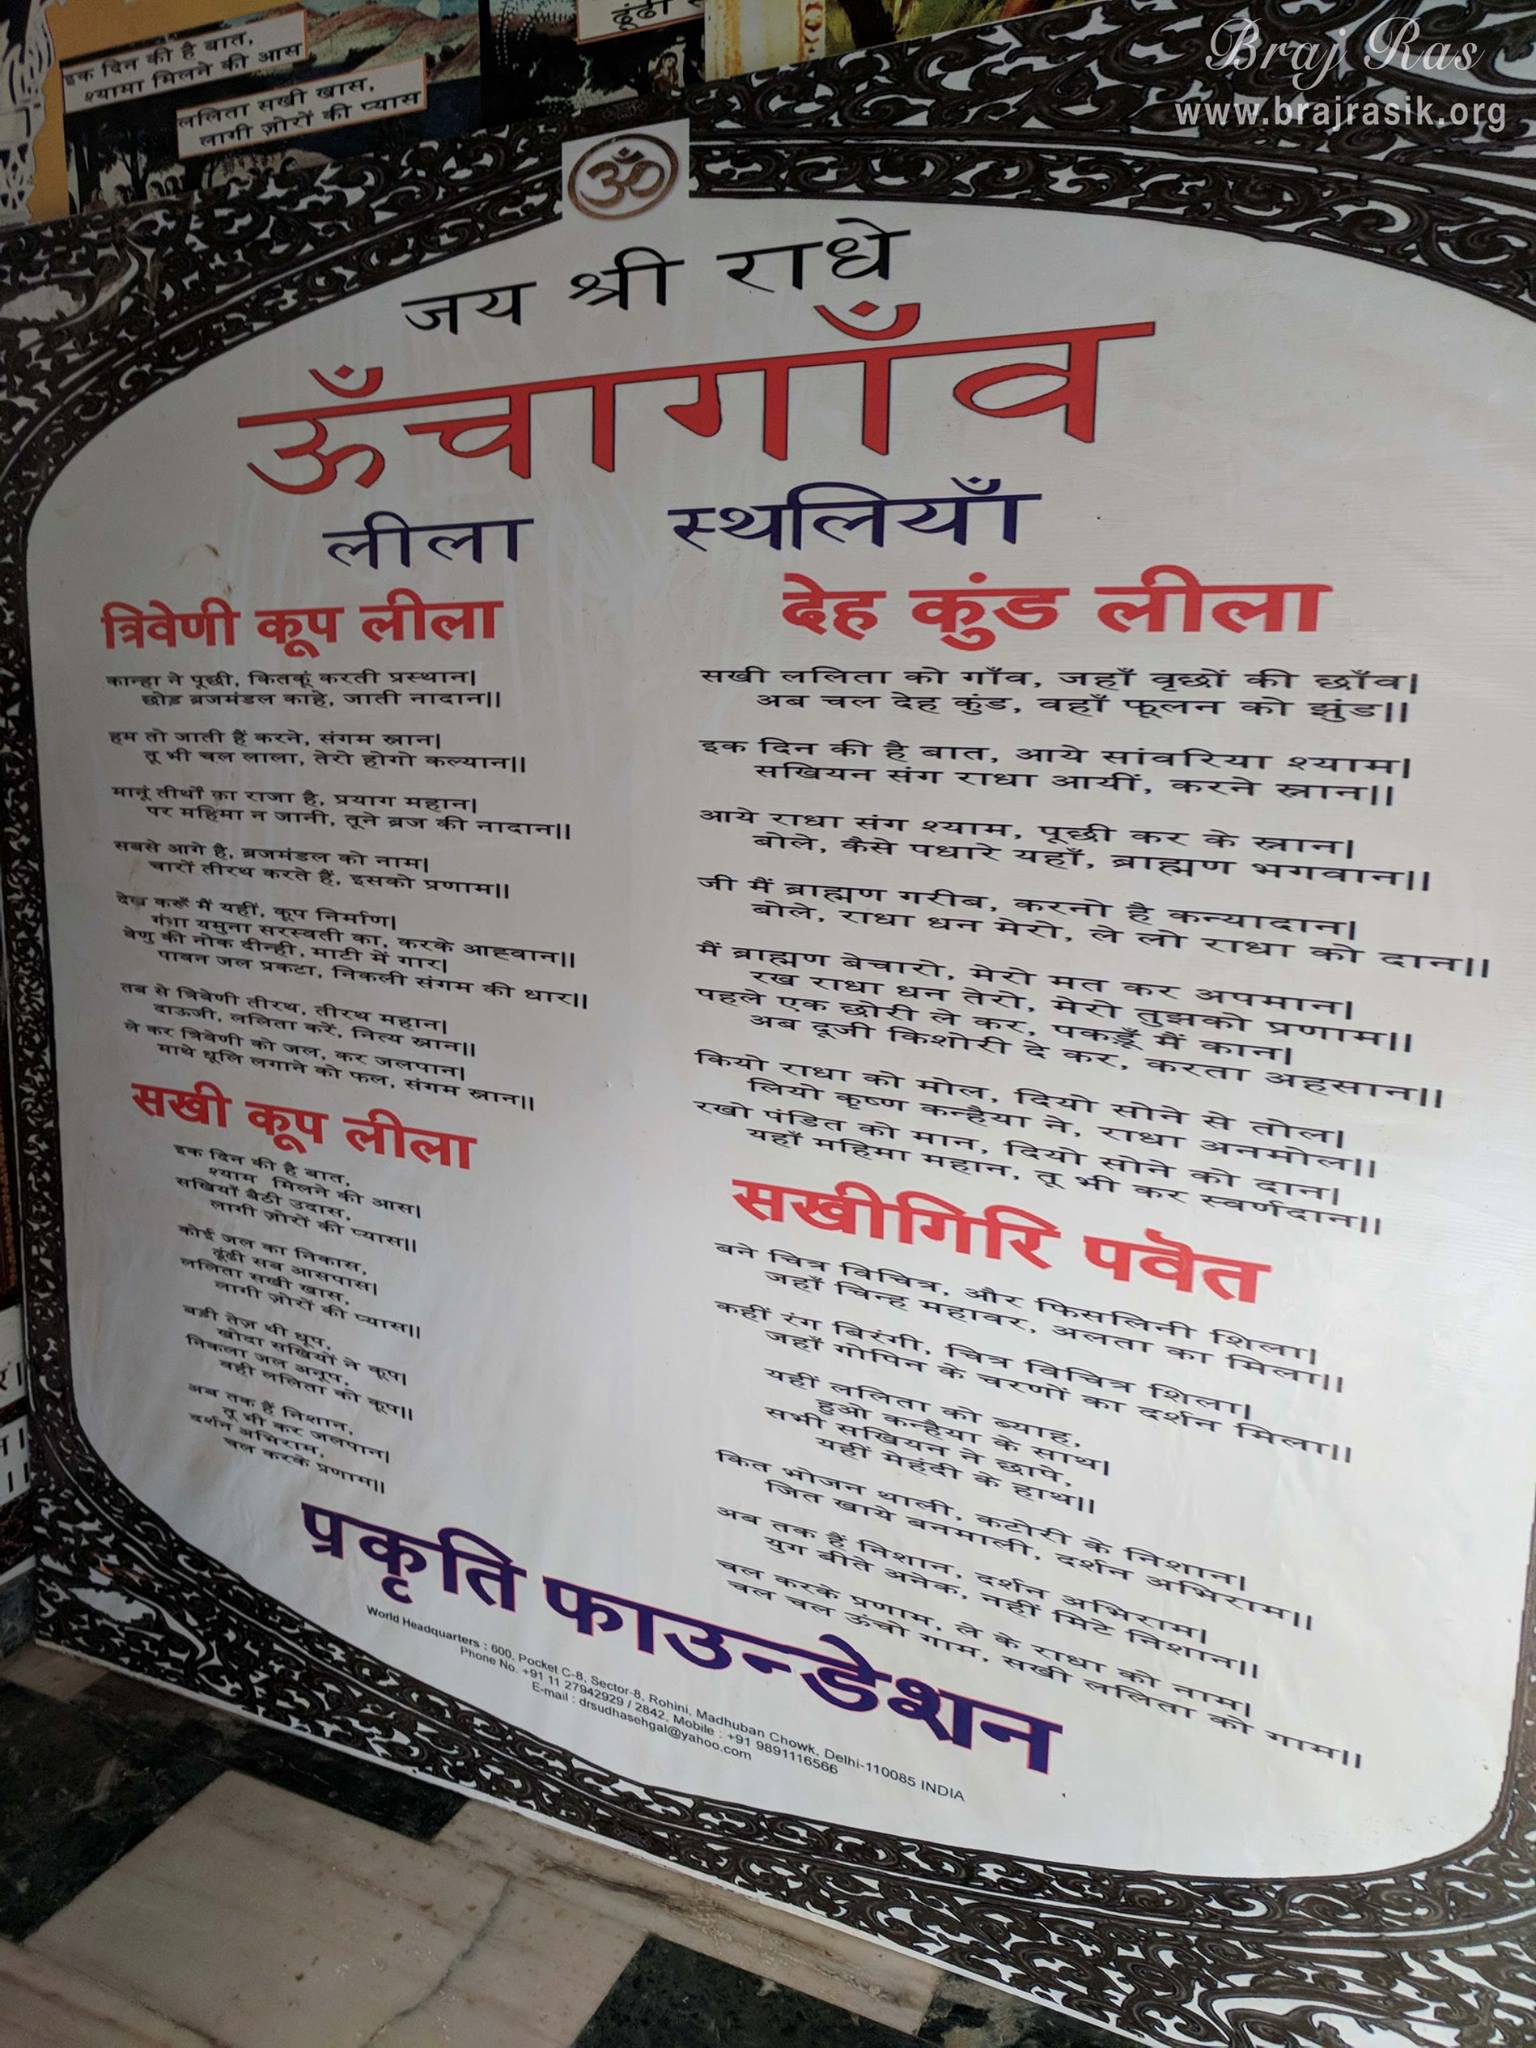 Braj Ras
www.brajrasik.org
इक दिन की है बात,
श्यामा मिलने की आस
ललिता सखी खास,
लागी ज़ोरों की प्यास
ढूंढी
ॐ
जय श्री राधे
ऊँचागाँव
लीला स्थलियाँ
त्रिवेणी कूप लीला
कान्हा ने पूछी, कितकूं करती प्रस्थान|
छोड़ ब्रजमंडल काहे, जाती नादान||
हम तो जाती हैं करने, संगम स्नान|
तू भी चल लाला, तेरो होगो कल्यान||
मानूं तीर्थों का राजा है, प्रयाग महान|
पर महिमा न जानी, तूने ब्रज की नादान||
सबसे आगे है, ब्रजमंडल को नाम|
चारों तीरथ करते हैं, इसको प्रणाम||
देख करूँ मैं यहीं, कूप निर्माण|
गंगा यमुना सरस्वती का, करके आह्वान||
वेणु की नोक दीन्ही, माटी में गार|
पावन जल प्रकटा, निकली संगम की धार||
तब से त्रिवेणी तीरथ, तीरथ महान|
दाऊजी, ललिता करें, नित्य स्नान||
ले कर त्रिवेणी को जल, कर जलपान|
माथे धूलि लगाने को फल, संगम स्नान||
सखी कूप लीला
इक दिन की है बात,
श्याम मिलने की आस|
सखियाँ बैठी उदास,
लागी ज़ोरों की प्यास||
कोई जल का निकास,
ढूंढी सब आसपास|
ललिता सखी खास,
लागी ज़ोरों की प्यास||
बड़ी तेज़ थी धूप,
खोदा सखियों ने कूप|
निकला जल अनूप,
वही ललिता को कूप||
अब तक हैं निशान,
तू भी कर जलपान|
दर्शन अभिराम,
चल करके प्रणाम||
देह कुंड लीला
सखी ललिता को गाँव, जहाँ वृछों की छाँव|
अब चल देह कुंड, वहाँ फूलन को झुंड||
इक दिन की है बात, आये सांवरिया श्याम|
सखियन संग राधा आयीं, करने स्नान||
आये राधा संग श्याम, पूछी कर के स्नान|
बोले, कैसे पधारे यहाँ, ब्राह्मण भगवान||
जी मैं ब्राह्मण गरीब, करनो है कन्यादान|
बोले, राधा धन मेरो, ले लो राधा को दान||
मैं ब्राह्मण बेचारो, मेरो मत कर अपमान|
रख राधा धन तेरो, मेरो तुझको प्रणाम||
पहले एक छोरी ले कर, पकड़ूँ मैं कान|
अब दूजी किशोरी दे कर, करता अहसान||
कियो राधा को मोल, दियो सोने से तोल|
लियो कृष्ण कन्हैया ने, राधा अनमोल||
रखो पंडित को मान, दियो सोने को दान|
यहाँ महिमा महान, तू भी कर स्वर्णदान||
सखीगिरि पवॆत
बने चित्र विचित्र, और फिसलिनी शिला|
जहाँ चिन्ह महावर, अलता का मिला||
कहीं रंग बिरंगी, चित्र विचित्र शिला|
जहाँ गोपिन के चरणों का दर्शन मिला||
यहीं ललिता को ब्याह,
हुओ कन्हैया के साथ|
सभी सखियन ने छापे,
यहीं मेहंदी के हाथ||
कित भोजन थाली, कटोरी के निशान|
जित खाये बनमाली, दर्शन अभिराम||
अब तक हैं निशान, दर्शन अभिराम|
युग बीते अनेक, नहीं मिटे निशान||
चल करके प्रणाम, ले के राधा को नाम|
चल चल ऊंचो गाम, सखी ललिता को गाम||
प्रकृति फाउन्डेशन
World Headquarters : 600, Pocket C-8, Sector-8, Rohini, Madhuban Chowk, Delhi-110085 INDIA
Phone No. +91 11 27942929 / 2842, Mobile : +91 9891116566
E-mail : drsudhasehgal@yahoo.com